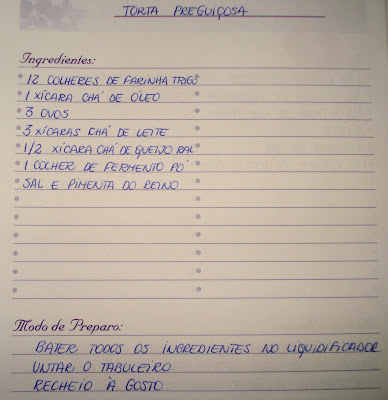 TORTA PREGUIÇOSA
Ingredientes:
12 COLHERES DE FARINHA TRIGO
1 XÍCARA CHÁ DE ÓLEO
3 OVOS
3 XÍCARAS CHÁ DE LEITE
1/2 XÍCARA CHÁ DE QUEIJO RAL
1 COLHER DE FERMENTO PÓ
SAL E PIMENTA DO REINO
Modo de Preparo:
BATER TODOS OS INGREDIENTES NO LIQUIDIFICADOR
UNTAR O TABULEIRO
RECHEIO À GOSTO